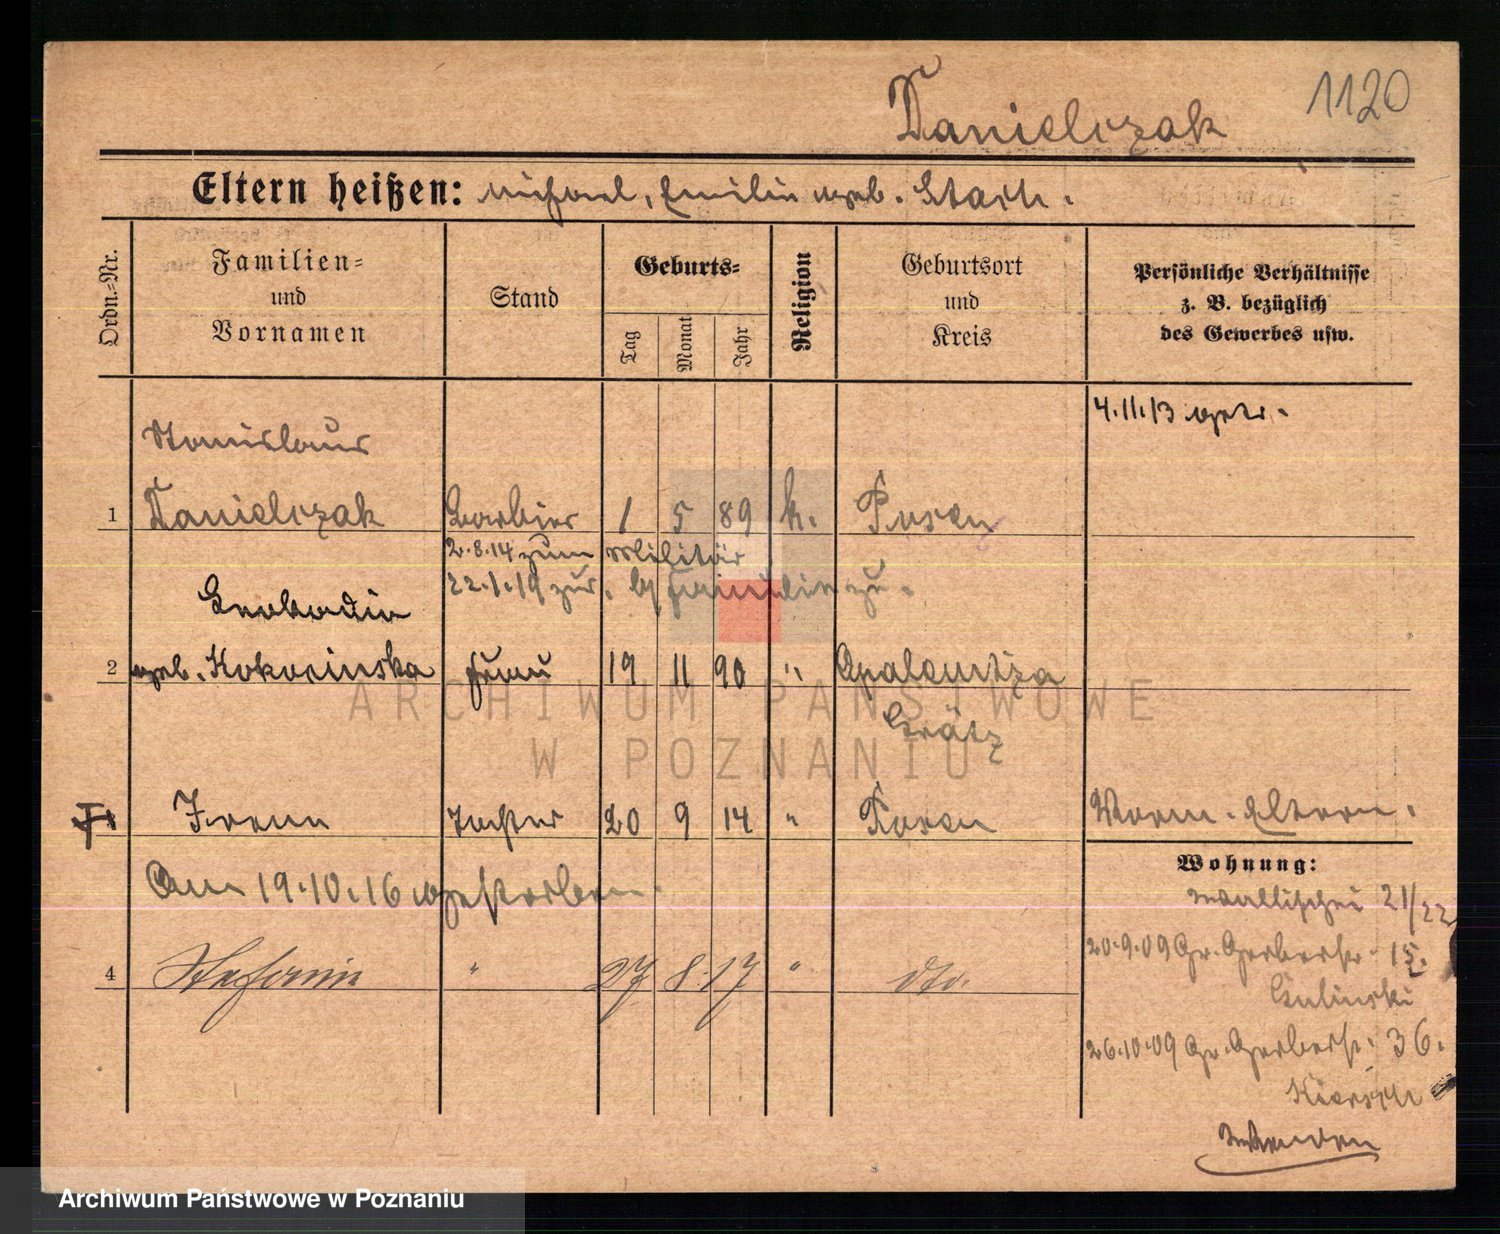 1120
Danielczak
Eltern heißen: Michael, Emilie geb. Stach.
Ordn.-Nr.
Familien-
und
Vornamen
Stand
Geburts-
Tag
Monat
Jahr
Religion
Geburtsort
und
Kreis
Persönliche Verhältnisse
z. B. bezüglich
des Gewerbes usw.
4.11.13 getr.
Stanislaus
1 Danielczak Barbier 1 5 89 k. Posen
2.8.14 zum Militär
22.1.19 zur. b/ Familie zu.
Leokadia
2 geb. Kokocinska Frau 19 11 90 " Opalenitza
Grätz
Irena Tochter 20 9 14 " Posen Worm. Eltern.
Am 19.10.16 gestorben.
4 Stefania " 27 8 17 " dto.
Wohnung:
Wallischei 21/22
20.9.09 Gr. Gerberstr. 15.
26.10.09 Gr. Gerberstr. 36.
Wenden
ARCHIWUM PAŃSTWOWE
W POZNANIU
Archiwum Państwowe w Poznaniu